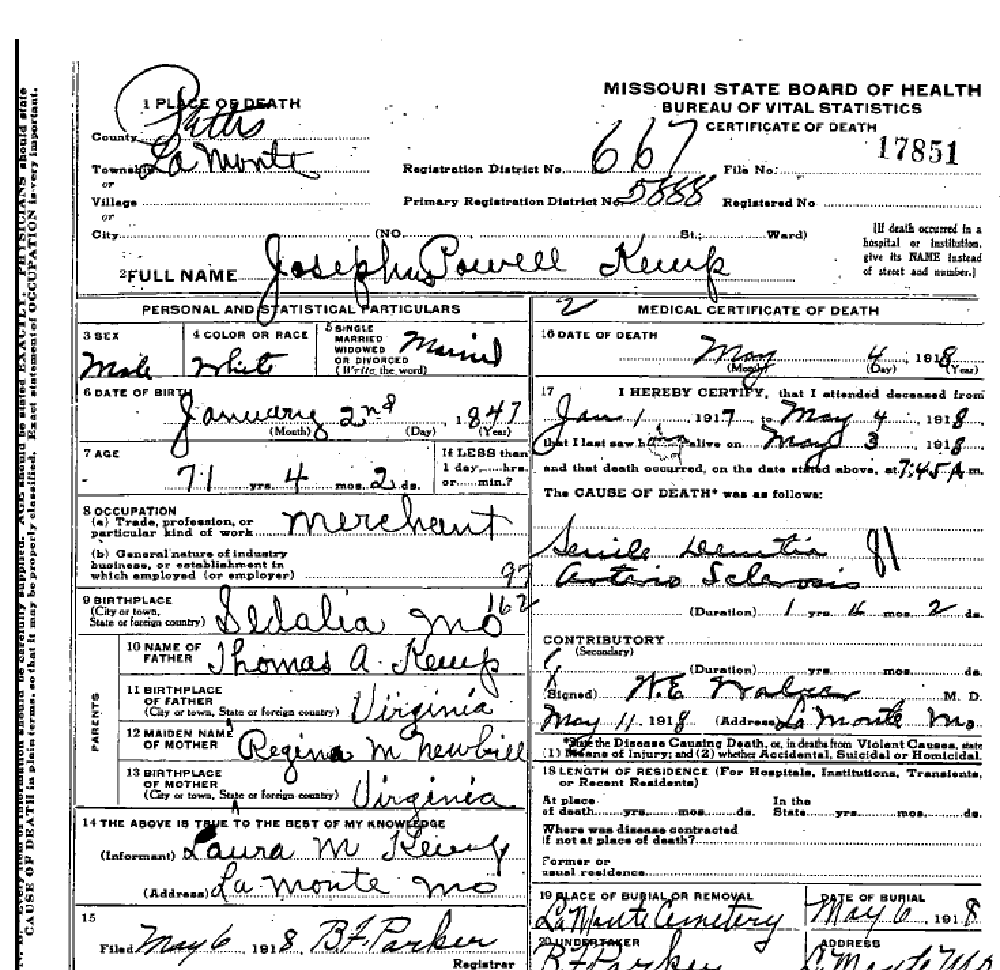 MISSOURI STATE BOARD OF HEALTH
BUREAU OF VITAL STATISTICS
CERTIFICATE OF DEATH
1 PLACE OF DEATH
County Pettis
Township La Monte
or
Village
or
City (NO. St.; Ward)
Registration District No. 667
Primary Registration District No. 5888
File No. 17851
Registered No
(If death occurred in a
hospital or institution,
give its NAME instead
of street and number.)
2 FULL NAME Joseph Powell Kemp
PERSONAL AND STATISTICAL PARTICULARS
3 SEX
Male
4 COLOR OR RACE
White
5 SINGLE
MARRIED
WIDOWED
OR DIVORCED
(Write the word)
Married
6 DATE OF BIRTH
January 2nd, 1847
(Month) (Day) (Year)
7 AGE
71 yrs. 4 mos. 2 ds.
If LESS than
1 day, hrs.
or min.?
8 OCCUPATION
(a) Trade, profession, or
particular kind of work Merchant
(b) General nature of industry
business, or establishment in
which employed (or employer)
97
162
9 BIRTHPLACE
(City or town,
State or foreign country) Sedalia Mo
PARENTS
10 NAME OF
FATHER Thomas A. Kemp
11 BIRTHPLACE
OF FATHER
(City or town, State or foreign country) Virginia
12 MAIDEN NAME
OF MOTHER Regina M Newbill
13 BIRTHPLACE
OF MOTHER
(City or town, State or foreign country) Virginia
14 THE ABOVE IS TRUE TO THE BEST OF MY KNOWLEDGE
(Informant) Laura M Kemp
(Address) La Monte Mo
15
Filed May 6 1918 B.F. Parker
Registrar
2
MEDICAL CERTIFICATE OF DEATH
16 DATE OF DEATH
May 4, 1918
(Month) (Day) (Year)
17 I HEREBY CERTIFY, that I attended deceased from
Jan 1, 1917, to May 4, 1918,
that I last saw him alive on May 3, 1918
and that death occurred, on the date stated above, at 7:45 A m.
The CAUSE OF DEATH* was as follows:
Senile Dementia 81
Arterio Sclerosis
(Duration) 1 yrs. 4 mos. 2 ds.
CONTRIBUTORY
(Secondary)
(Duration) yrs. mos. ds.
(Signed) W.E. M. D.
May 11, 1918 (Address) La Monte Mo
*State the Disease Causing Death, or, in deaths from Violent Causes, state
(1) Means of Injury; and (2) whether Accidental, Suicidal or Homicidal.
18 LENGTH OF RESIDENCE (For Hospitals, Institutions, Transients,
or Recent Residents)
At place
of death yrs. mos. ds.
In the
State yrs. mos. ds.
Where was disease contracted
if not at place of death?
Former or
usual residence
19 PLACE OF BURIAL OR REMOVAL
La Monte Cemetery
DATE OF BURIAL
May 6, 1918
20 UNDERTAKER
B F Parker
ADDRESS
La Monte Mo
CAUSE OF DEATH in plain terms, so that it may be properly classified. Exact statement of OCCUPATION is very important.